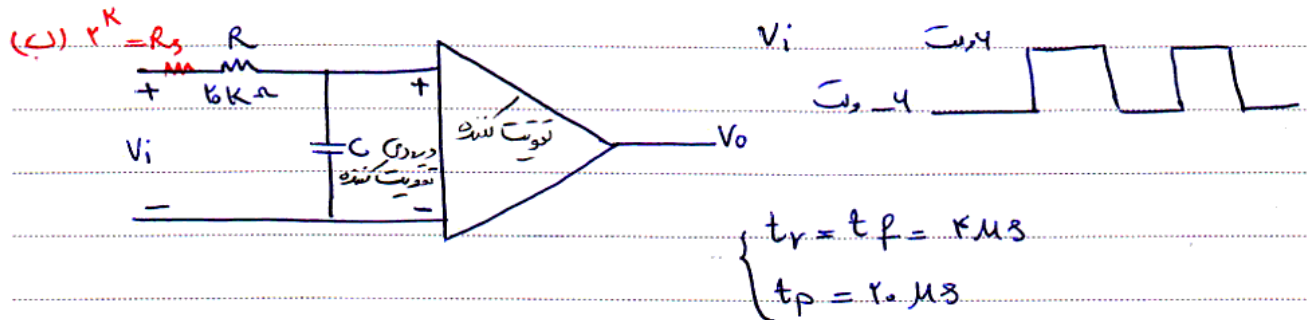 (ب) ۲K = Rs
R
۵KΩ
+
Vi
-
C
ورودی
تقویت کننده
+
-
تقویت کننده
Vo
Vi
۶ ولت
-۶ ولت
tr = tf = ۴ μs
tp = ۲۰ μs